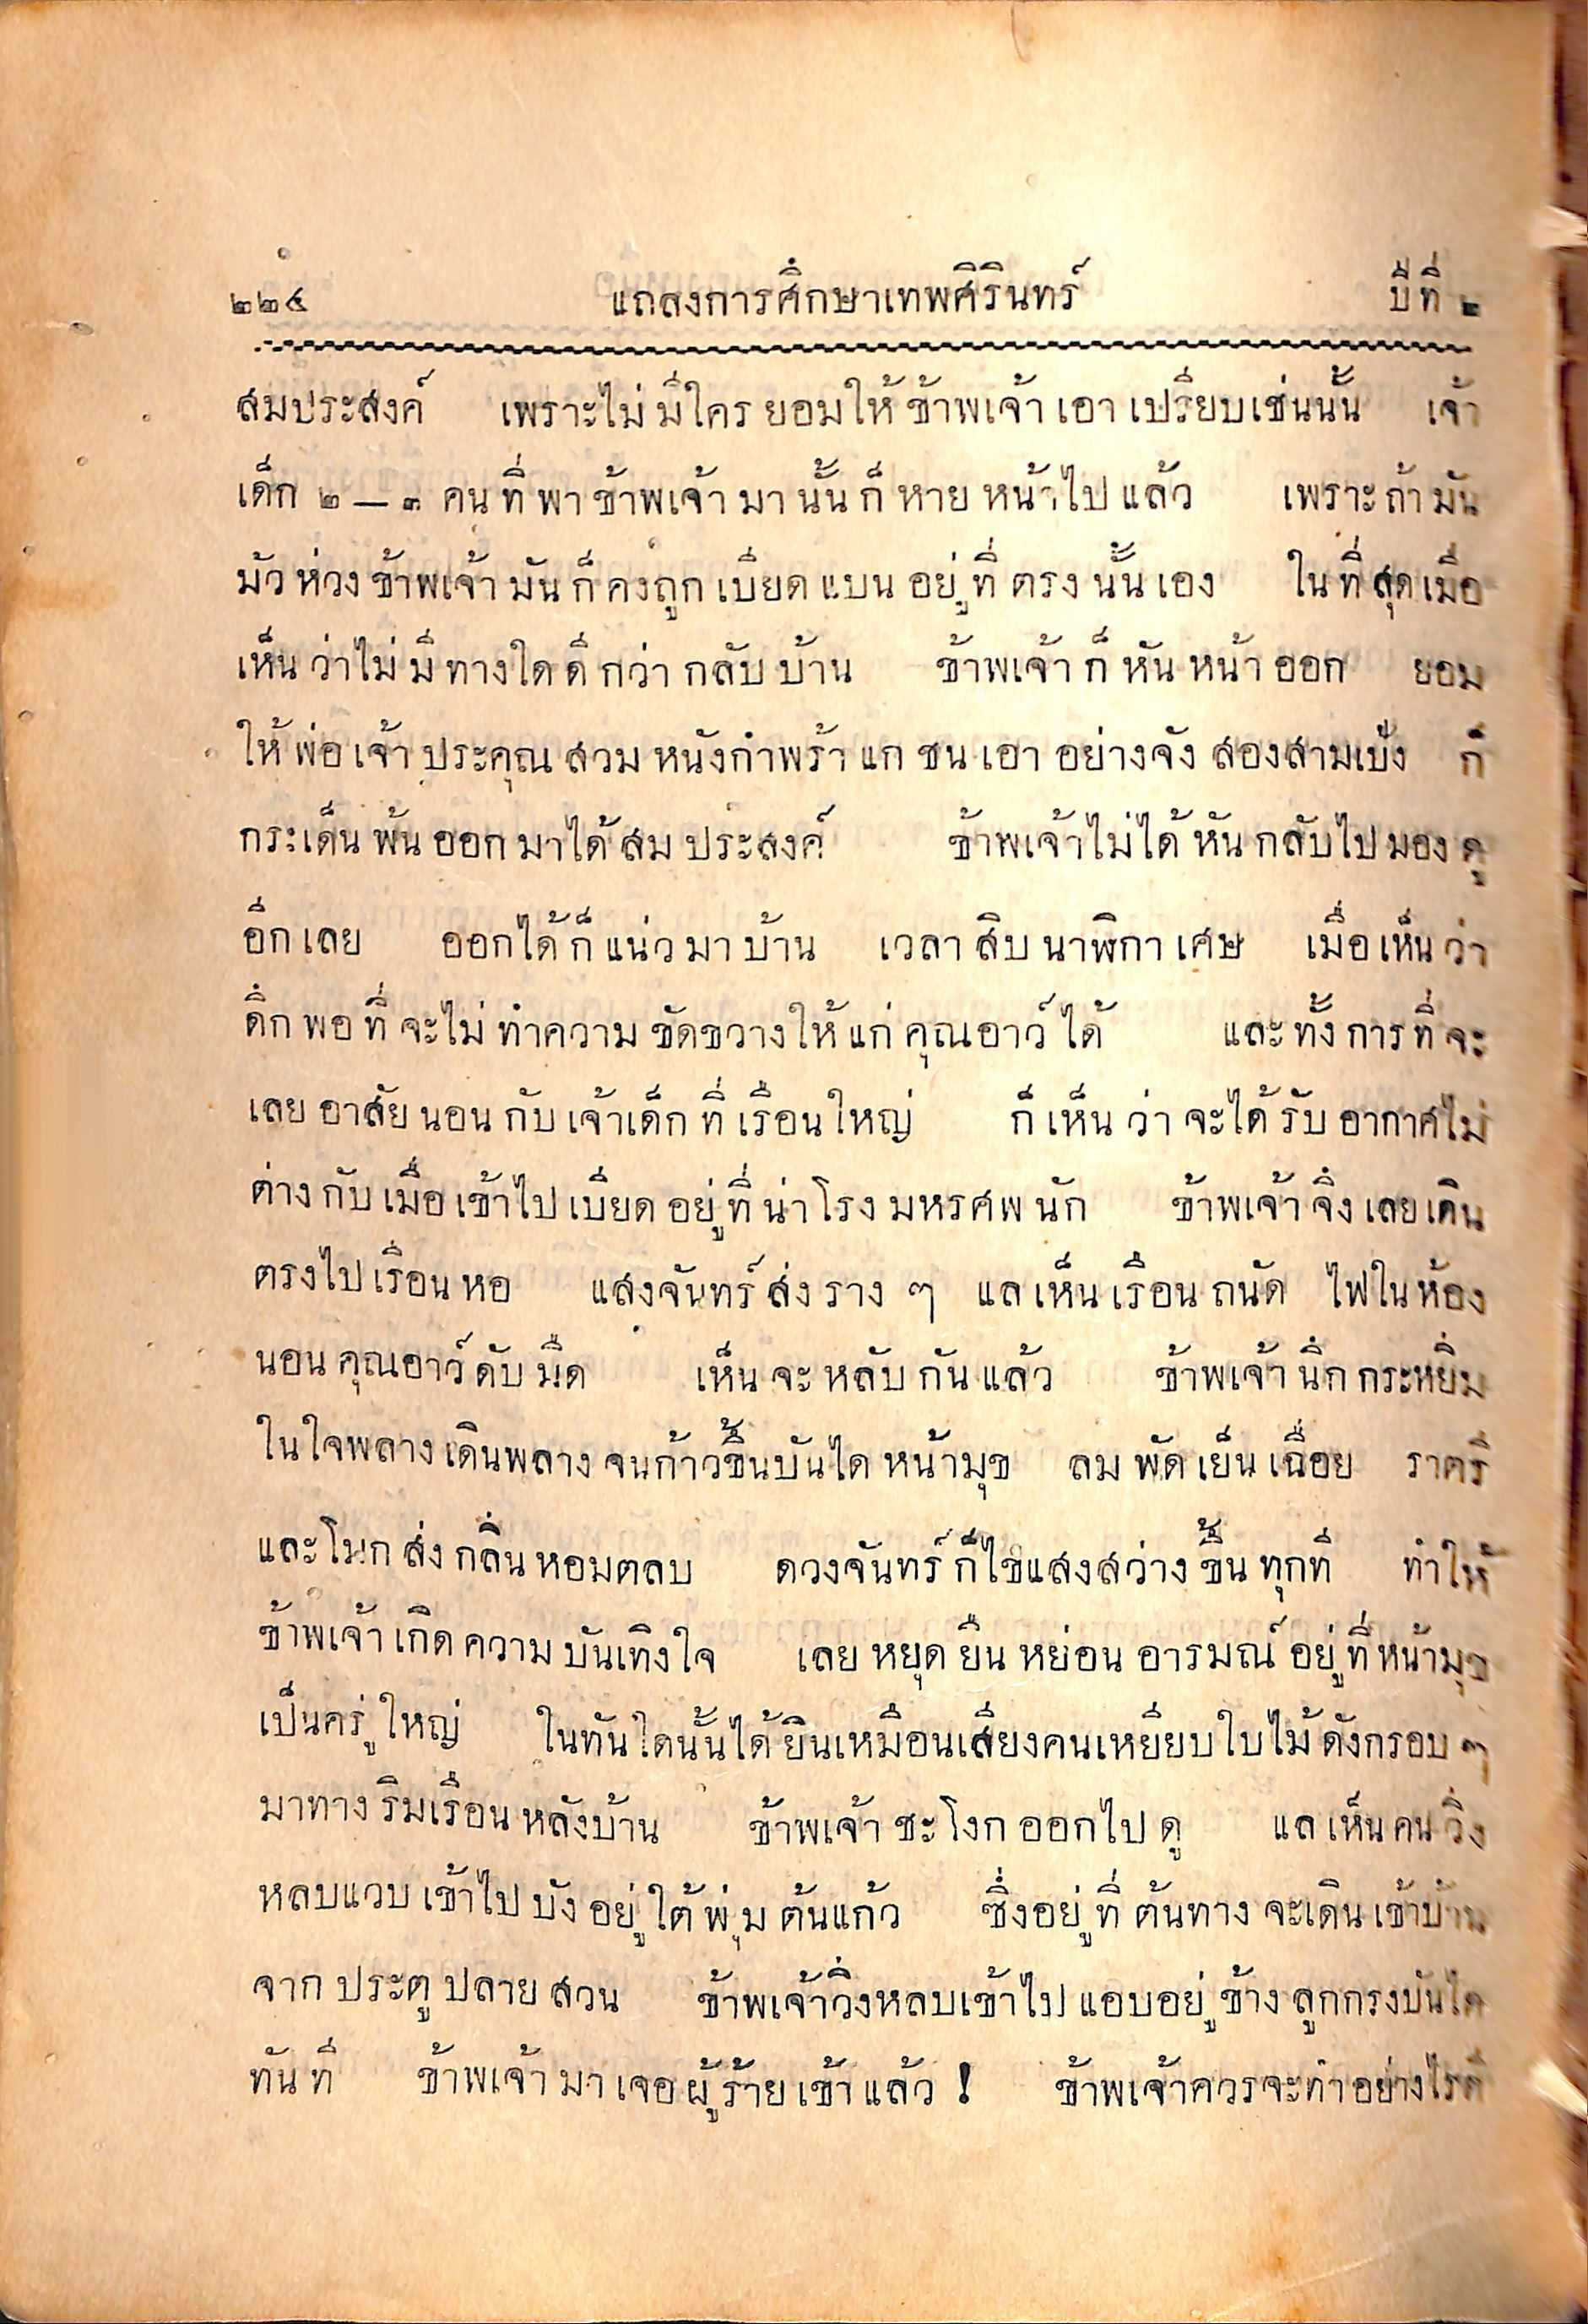 ๒๒๔ แถลงการศึกษาเทพศิรินทร์ ปีที่ ๒
สมประสงค์ เพราะไม่มีใครยอมให้ข้าพเจ้าเอาเปรียบเช่นนั้น เจ้า
เด็ก ๒ — ๓ คนที่พาข้าพเจ้ามานั้นก็หายหน้าไปแล้ว เพราะถ้ามัน
มัวห่วงข้าพเจ้ามันก็คงถูกเบียดแบนอยู่ที่ตรงนั้นเอง ในที่สุดเมื่อ
เห็นว่าไม่มีทางใดดีกว่ากลับบ้าน ข้าพเจ้าก็หันหน้าออก ยอม
ให้พ่อเจ้าประคุณสวมหนังกำพร้าแกชนเอาอย่างจังสองสามเป้ง ก็
กระเด็นพ้นออกมาได้สมประสงค์ ข้าพเจ้าไม่ได้หันกลับไปมองดู
อีกเลย ออกได้ก็แน่วมาบ้าน เวลาสิบนาฬิกาเศษ เมื่อเห็นว่า
ดึกพอที่จะไม่ทำความขัดขวางให้แก่คุณอาว์ได้ และทั้งการที่จะ
เลยอาสัยนอนกับเจ้าเด็กที่เรือนใหญ่ ก็เห็นว่าจะได้รับอากาศไม่
ต่างกับเมื่อเข้าไปเบียดอยู่ที่น่าโรงมหรศพนัก ข้าพเจ้าจึงเลยเดิน
ตรงไปเรือนหอ แสงจันทร์ส่งราง ๆ แลเห็นเรือนถนัด ไฟในห้อง
นอนคุณอาว์ดับมืด เห็นจะหลับกันแล้ว ข้าพเจ้านึกกระหยิ่ม
ในใจพลางเดินพลางจนก้าวขึ้นบันไดหน้ามุข ลมพัดเย็นเฉื่อย ราตรี
และโมกส่งกลิ่นหอมตลบ ดวงจันทร์ก็ไขแสงสว่างขึ้นทุกที ทำให้
ข้าพเจ้าเกิดความบันเทิงใจ เลยหยุดยืนหย่อนอารมณ์อยู่ที่หน้ามุข
เป็นครู่ใหญ่ ในทันใดนั้นได้ยินเหมือนเสียงคนเหยียบใบไม้ดังกรอบ ๆ
มาทางริมเรือนหลังบ้าน ข้าพเจ้าชะโงกออกไปดู แลเห็นคนวิ่ง
หลบแวบเข้าไปบังอยู่ใต้พุ่มต้นแก้ว ซึ่งอยู่ที่ต้นทางจะเดินเข้าบ้าน
จากประตูปลายสวน ข้าพเจ้าวิ่งหลบเข้าไปแอบอยู่ข้างลูกกรงบันได
ทันที ข้าพเจ้ามาเจอผู้ร้ายเข้าแล้ว ! ข้าพเจ้าควรจะทำอย่างไรดี